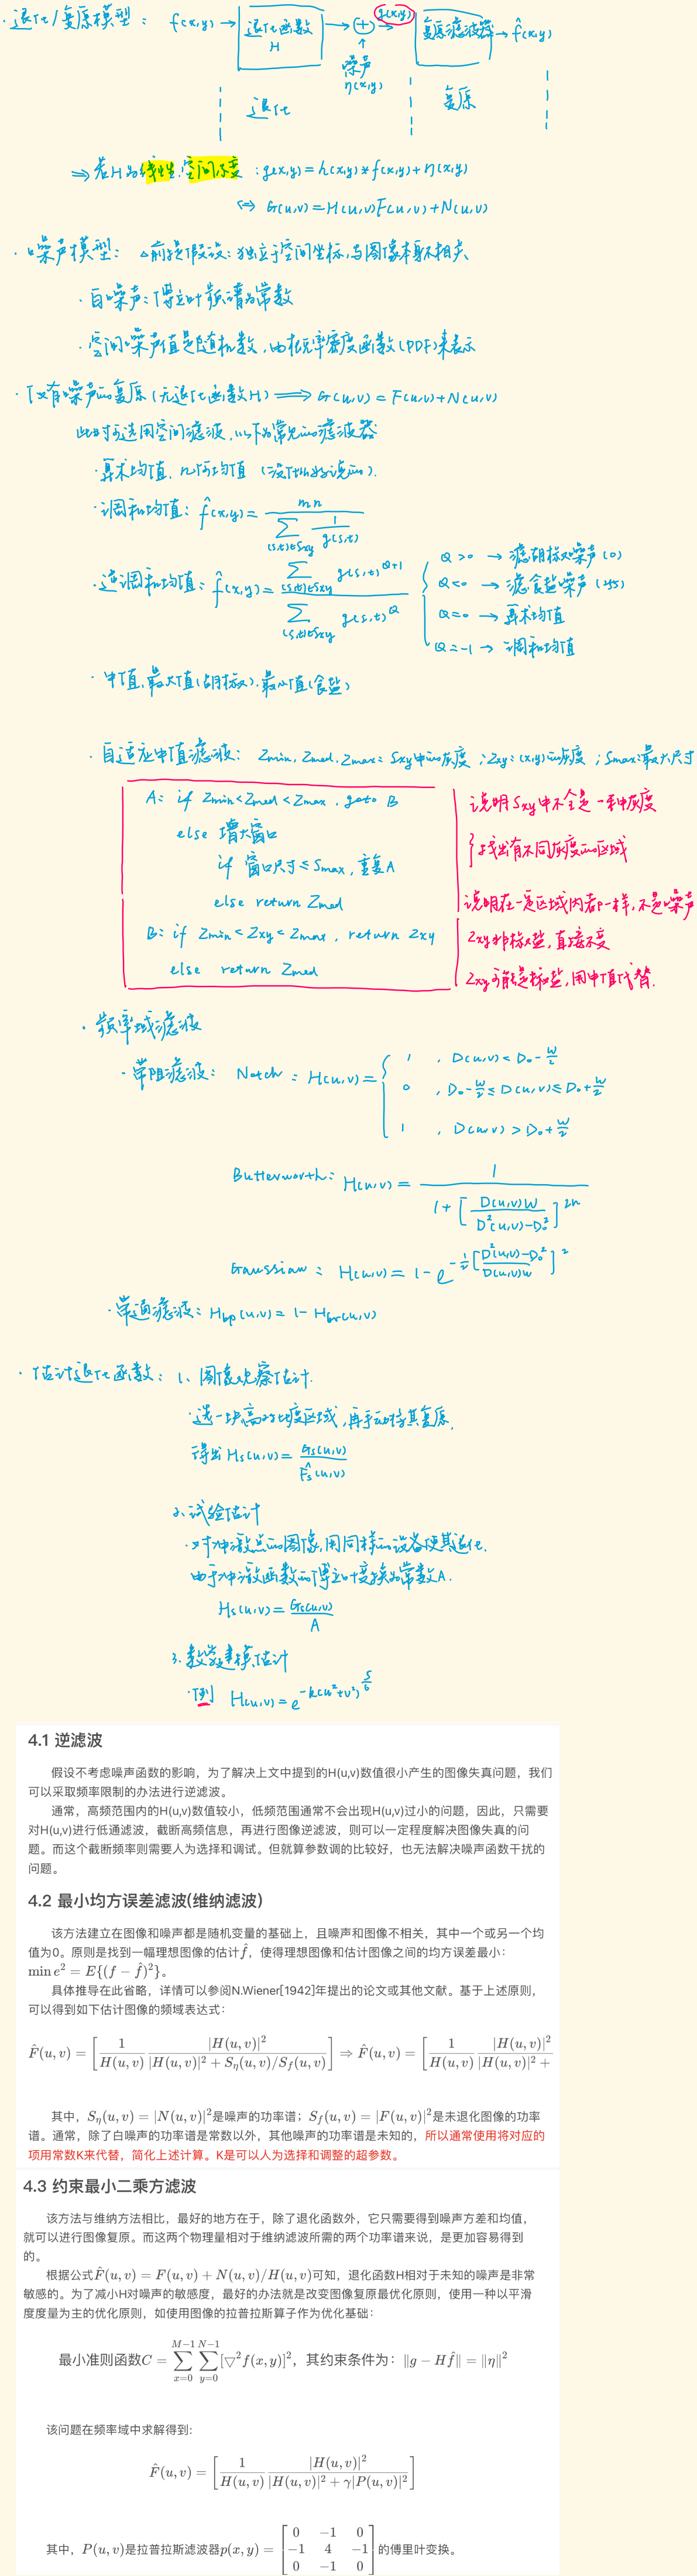 · 退化/复原模型： f(x,y) → 退化函数 H → ⊕ → g(x,y) → 复原滤波器 → f̂(x,y)
↑
噪声
η(x,y)
退化 复原
⇒ 若H为线性、空间不变：g(x,y)=h(x,y)*f(x,y)+η(x,y)
⇔ G(u,v)=H(u,v)F(u,v)+N(u,v)
· 噪声模型： △前提假设：独立于空间坐标,与图像本身不相关
· 白噪声：傅立叶频谱为常数
· 空间噪声值是随机数,由概率密度函数(PDF)来表示
· 仅有噪声的复原(无退化函数H) ⟹ G(u,v)=F(u,v)+N(u,v)
此时可选用空间滤波,以下为常见的滤波器
· 算术均值,几何均值 (没什么好说的).
· 调和均值：f̂(x,y)= mn / ∑_{(s,t)∈Sxy} 1/g(s,t)
· 逆谐和均值：f̂(x,y)= ∑_{(s,t)∈Sxy} g(s,t)^{Q+1} / ∑_{(s,t)∈Sxy} g(s,t)^Q
Q>0 → 滤胡椒噪声(0)
Q<0 → 滤食盐噪声(255)
Q=0 → 算术均值
Q=-1 → 调和均值
· 中值,最大值(胡椒).最小值(食盐)
· 自适应中值滤波： Zmin, Zmed, Zmax: Sxy中的灰度；Zxy: (x,y)的灰度；Smax:最大尺寸
A: if Zmin<Zmed<Zmax, goto B 说明Sxy中不全是一种灰度
else 增大窗口
if 窗口尺寸≤Smax,重复A }找出有不同灰度的区域
else return Zmed 说明在一定区域内都一样,不是噪声
B: if Zmin<Zxy<Zmax, return Zxy Zxy非椒盐,直接不变
else return Zmed Zxy可能是椒盐,用中值代替.
· 频率域滤波
· 带阻滤波： Notch：H(u,v)= { 1 , D(u,v)<D₀-W/2
0 , D₀-W/2≤D(u,v)≤D₀+W/2
1 , D(u,v)>D₀+W/2
Butterworth：H(u,v)= 1 / (1+[D(u,v)W / (D²(u,v)-D₀²)]^{2n})
Gaussian：H(u,v)=1-e^{-1/2[(D²(u,v)-D₀²)/(D(u,v)W)]²}
· 带通滤波：Hbp(u,v)=1-Hbr(u,v)
· 估计退化函数： 1、图像观察估计.
· 选一块高对比度区域,再手动将其复原.
得出 Hs(u,v)=Gs(u,v)/F̂s(u,v)
2.试验估计
· 对冲激点的图像,用同样的设备使其退化.
由于冲激函数的傅立叶变换为常数A.
Hs(u,v)=Gs(u,v)/A
3.数学建模估计
· 例 H(u,v)=e^{-k(u²+v²)^{5/6}}
4.1 逆滤波
假设不考虑噪声函数的影响，为了解决上文中提到的H(u,v)数值很小产生的图像失真问题，我们
可以采取频率限制的办法进行逆滤波。
通常，高频范围内的H(u,v)数值较小，低频范围通常不会出现H(u,v)过小的问题，因此，只需要
对H(u,v)进行低通滤波，截断高频信息，再进行图像逆滤波，则可以一定程度解决图像失真的问
题。而这个截断频率则需要人为选择和调试。但就算参数调的比较好，也无法解决噪声函数干扰的
问题。
4.2 最小均方误差滤波(维纳滤波)
该方法建立在图像和噪声都是随机变量的基础上，且噪声和图像不相关，其中一个或另一个均
值为0。原则是找到一幅理想图像的估计f̂，使得理想图像和估计图像之间的均方误差最小：
min e² = E{(f − f̂)²}。
具体推导在此省略，详情可以参阅N.Wiener[1942]年提出的论文或其他文献。基于上述原则，
可以得到如下估计图像的频域表达式：
F̂(u,v) = [1/H(u,v) |H(u,v)|² / (|H(u,v)|² + Sη(u,v)/Sf(u,v))] ⇒ F̂(u,v) = [1/H(u,v) |H(u,v)|² / (|H(u,v)|² +
其中，Sη(u,v) = |N(u,v)|²是噪声的功率谱；Sf(u,v) = |F(u,v)|²是未退化图像的功率
谱。通常，除了白噪声的功率谱是常数以外，其他噪声的功率谱是未知的，所以通常使用将对应的
项用常数K来代替，简化上述计算。K是可以人为选择和调整的超参数。
4.3 约束最小二乘方滤波
该方法与维纳方法相比，最好的地方在于，除了退化函数外，它只需要得到噪声方差和均值，
就可以进行图像复原。而这两个物理量相对于维纳滤波所需的两个功率谱来说，是更加容易得到
的。
根据公式F̂(u,v) = F(u,v) + N(u,v)/H(u,v)可知，退化函数H相对于未知的噪声是非常
敏感的。为了减小H对噪声的敏感度，最好的办法就是改变图像复原最优化原则，使用一种以平滑
度度量为主的优化原则，如使用图像的拉普拉斯算子作为优化基础：
最小准则函数C = ∑_{x=0}^{M−1} ∑_{y=0}^{N−1} [▽²f(x,y)]²，其约束条件为：‖g − Hf̂‖ = ‖η‖²
该问题在频率域中求解得到：
F̂(u,v) = [1/H(u,v) |H(u,v)|² / (|H(u,v)|² + γ|P(u,v)|²)]
其中，P(u,v)是拉普拉斯滤波器p(x,y) = [0 −1 0; −1 4 −1; 0 −1 0]的傅里叶变换。